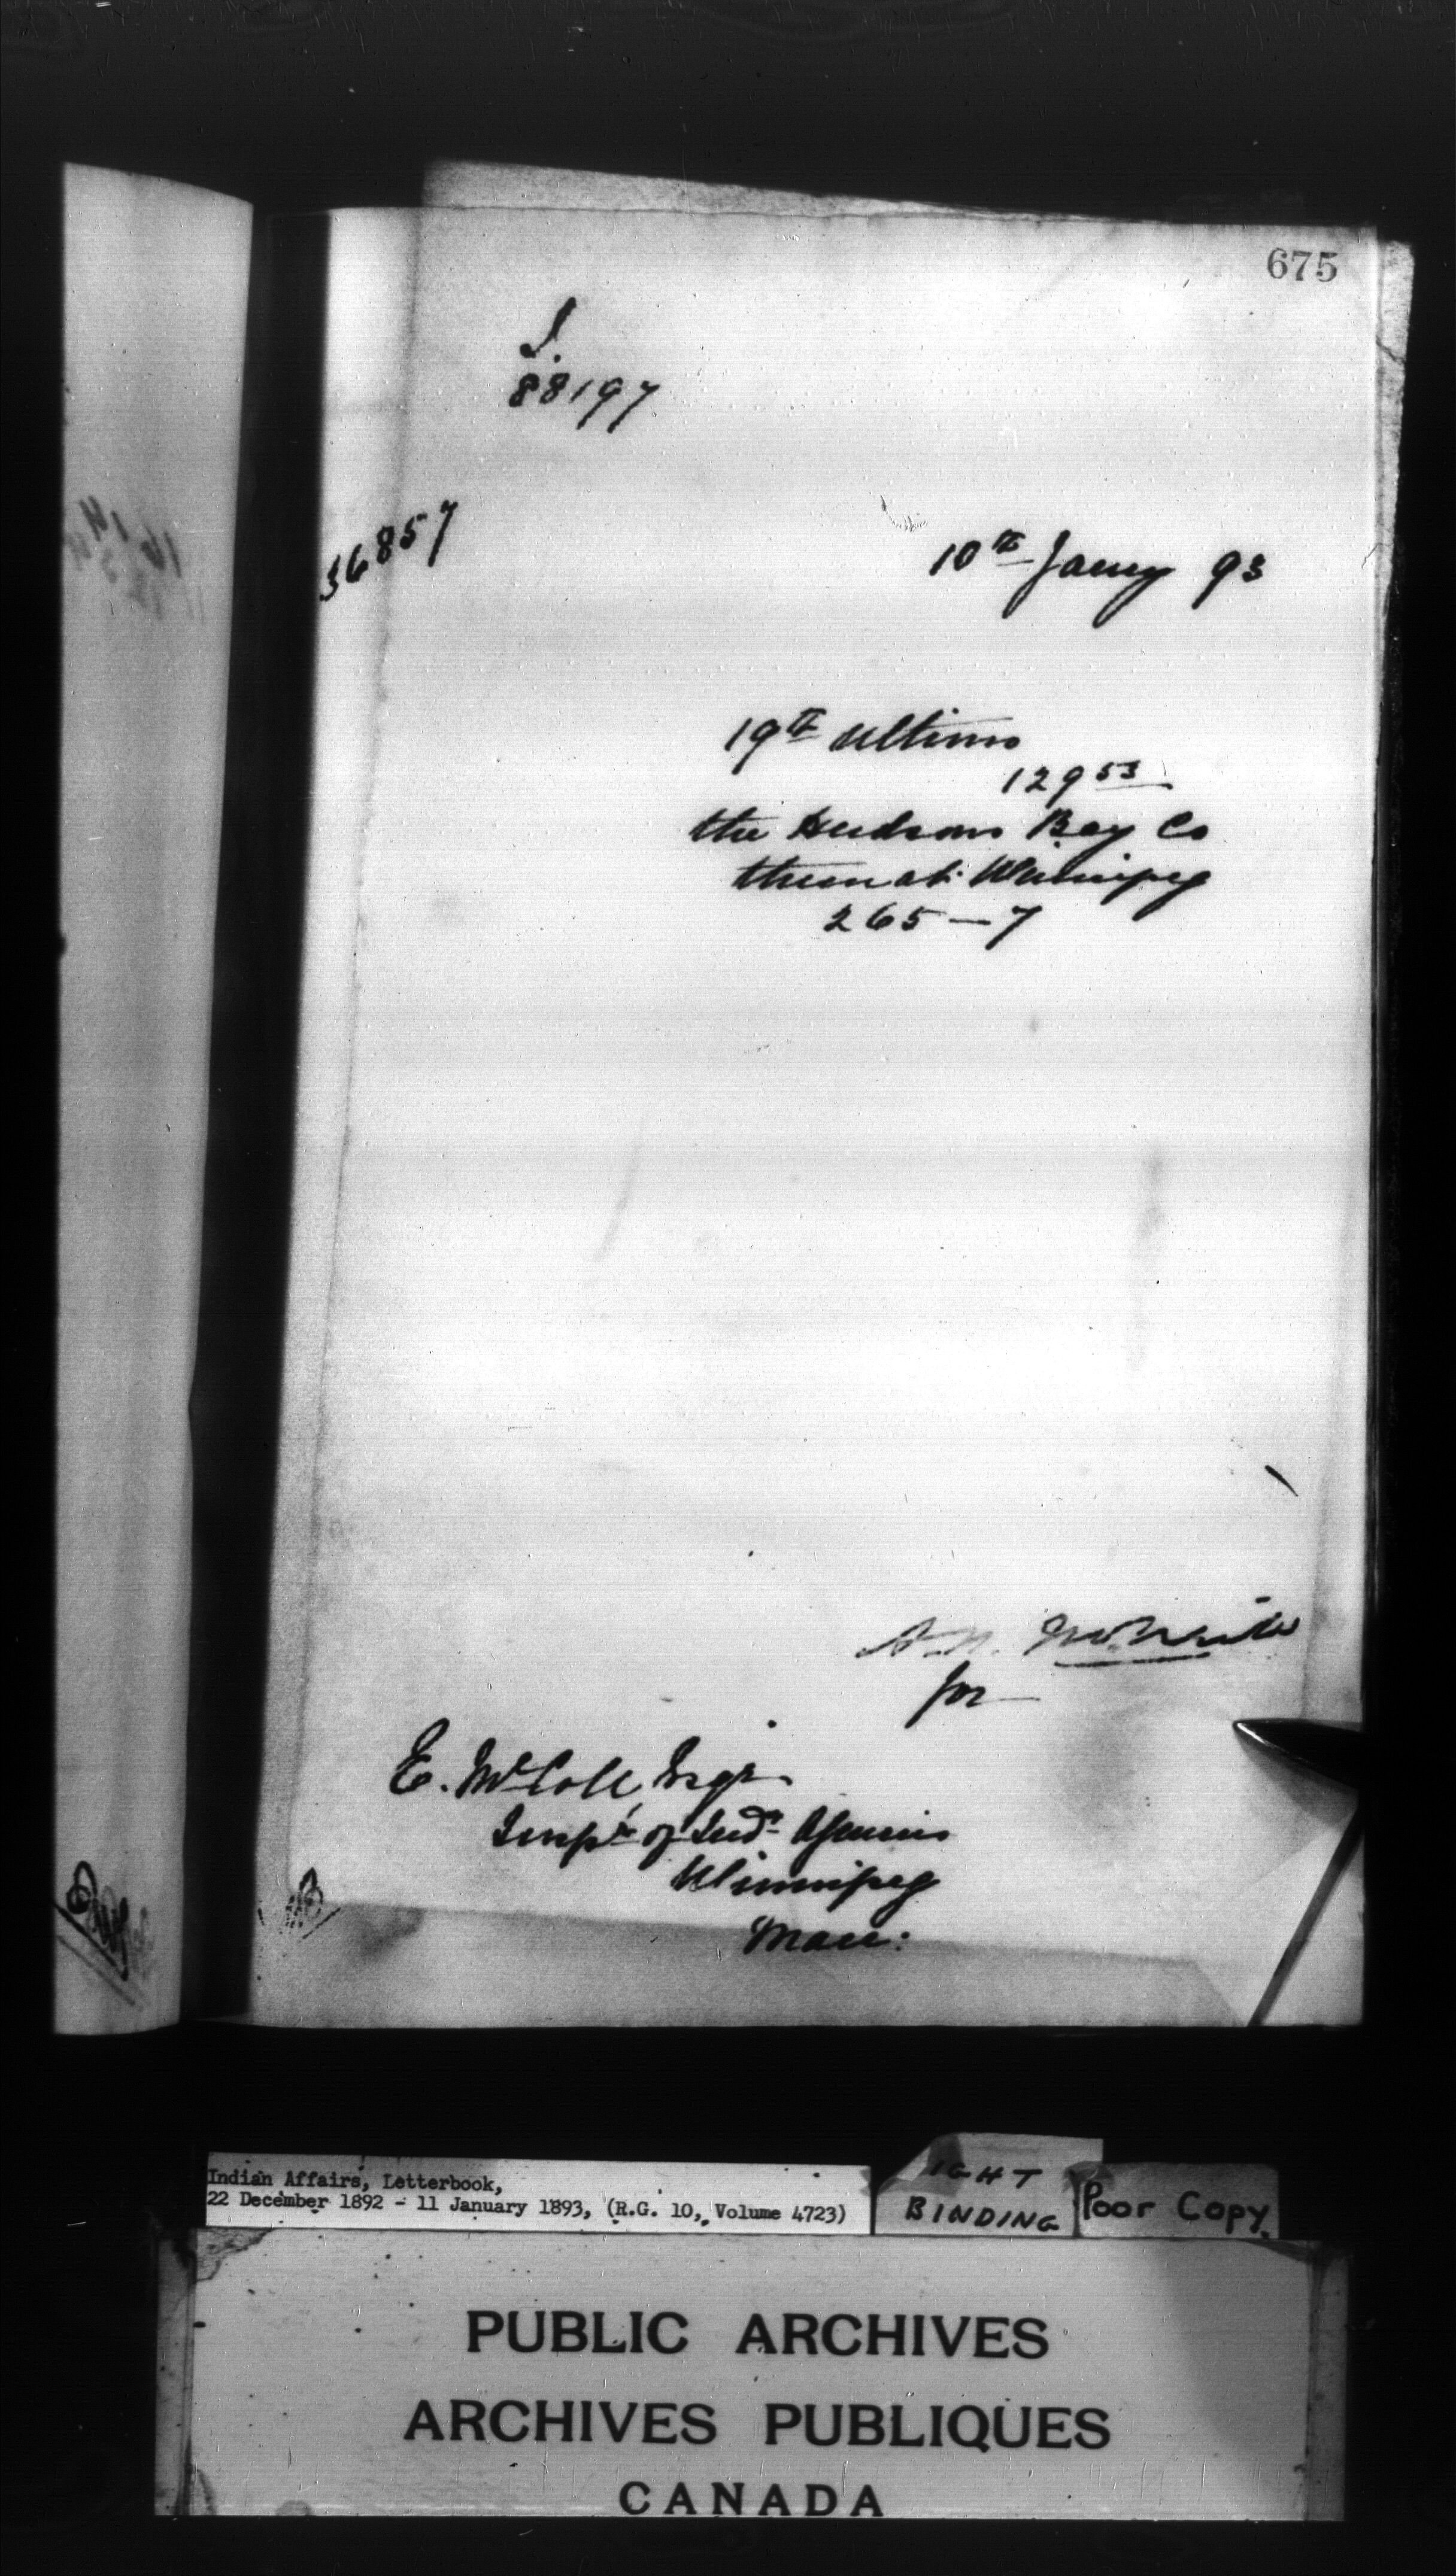 675
88197
36857
10th Jany 93
19th ultimo
129 53
the Hudsons Bay Co
them at Winnipeg
265 — 7
for
E. McColl Esqr.
Inspr of Indn Agencies
Winnipeg
Man:
Indian Affairs, Letterbook,
22 December 1892 - 11 January 1893, (R.G. 10, Volume 4723)
IGHT
BINDING
Poor Copy.
PUBLIC ARCHIVES
ARCHIVES PUBLIQUES
CANADA